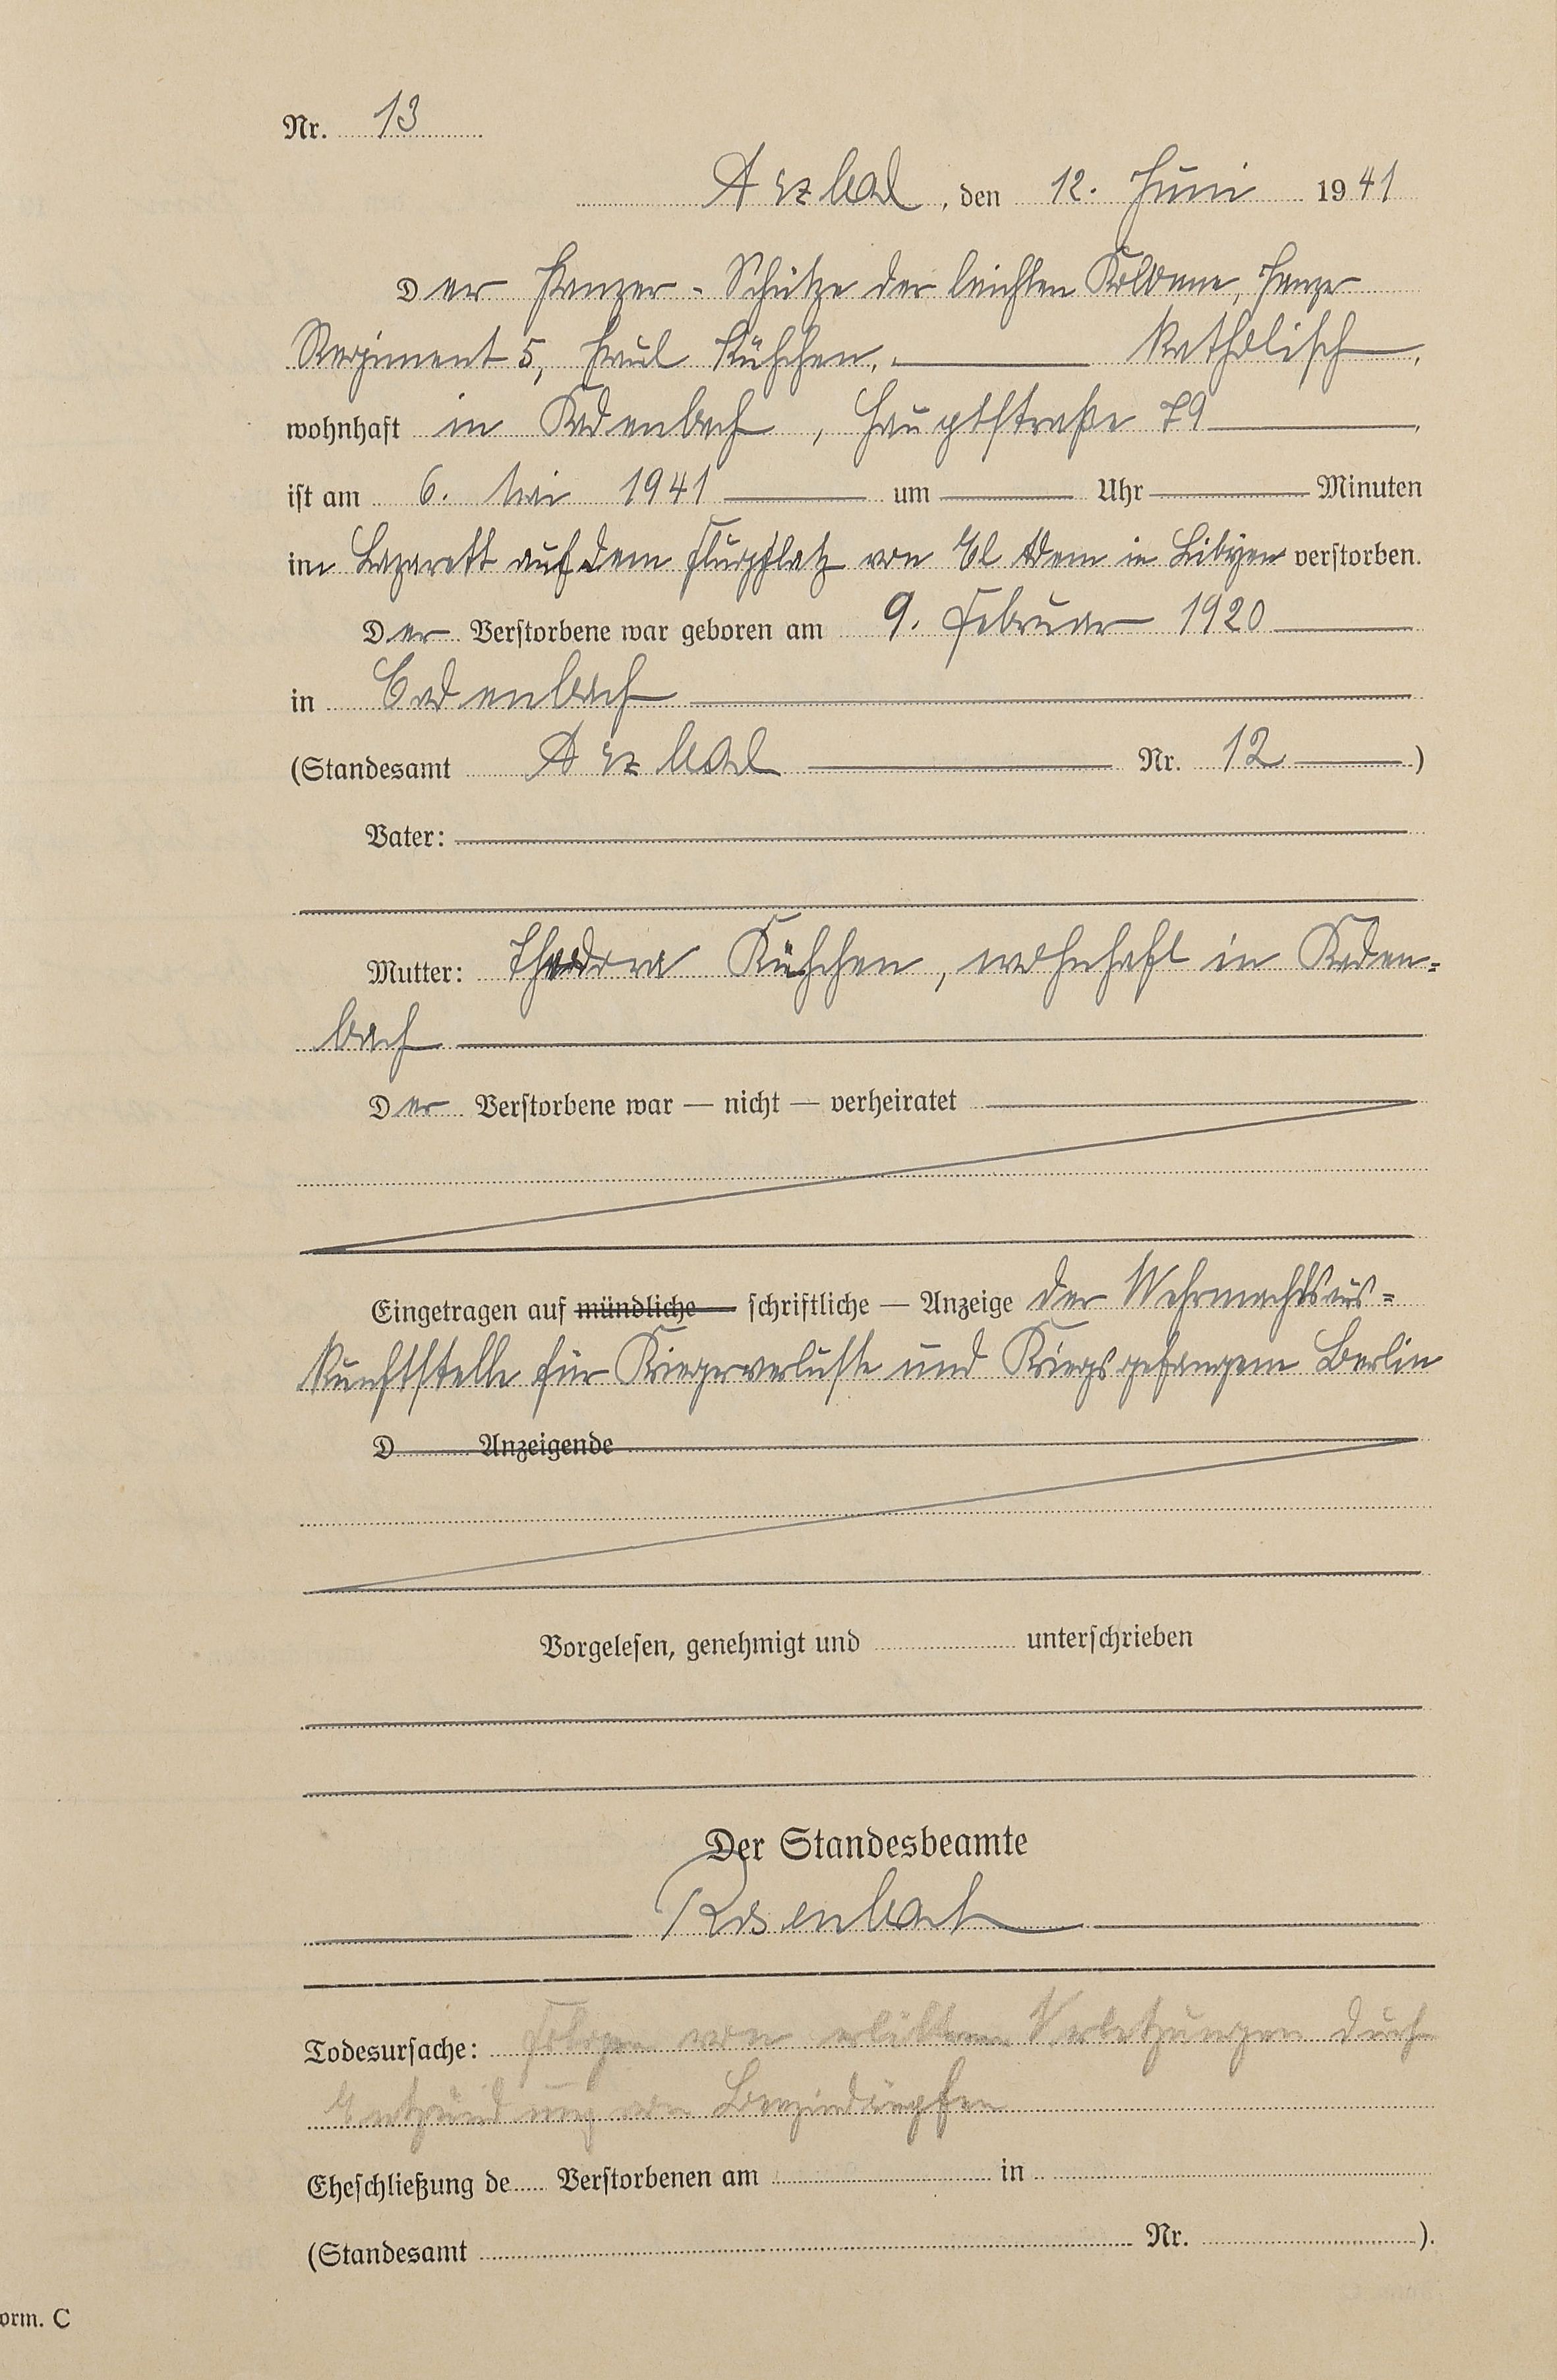 Nr. 13
Arzbach, den 12. Juni 1941
Der Panzer-Schütze der leichten Kolonne, Panzer
Regiment 5, Paul Kühchen, katholisch,
wohnhaft in Kadenbach, Hauptstraße 79,
ist am 6. Mai 1941 um Uhr Minuten
im Lazarett auf dem Flugplatz von El Adem in Libyen verstorben.
Der Verstorbene war geboren am 9. Februar 1920
in Cadenbach
(Standesamt Arzbach Nr. 12)
Vater:
Mutter: Theodora Kühchen, wohnhaft in Kaden=
bach
Der Verstorbene war — nicht — verheiratet
Eingetragen auf mündliche — schriftliche — Anzeige der Wehrmachtsaus=
kunftstelle für Kriegerverluste und Kriegsgefangene Berlin
D Anzeigende
Vorgelesen, genehmigt und unterschrieben
Der Standesbeamte
Rosenbach
Todesursache: Folgen von erlittenen Verletzungen durch
Entzündung von Benzindämpfen
Eheschließung de Verstorbenen am in
(Standesamt Nr. ).
orm. C